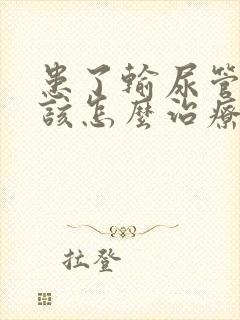 患了輸尿管
該怎麼治療
拉登